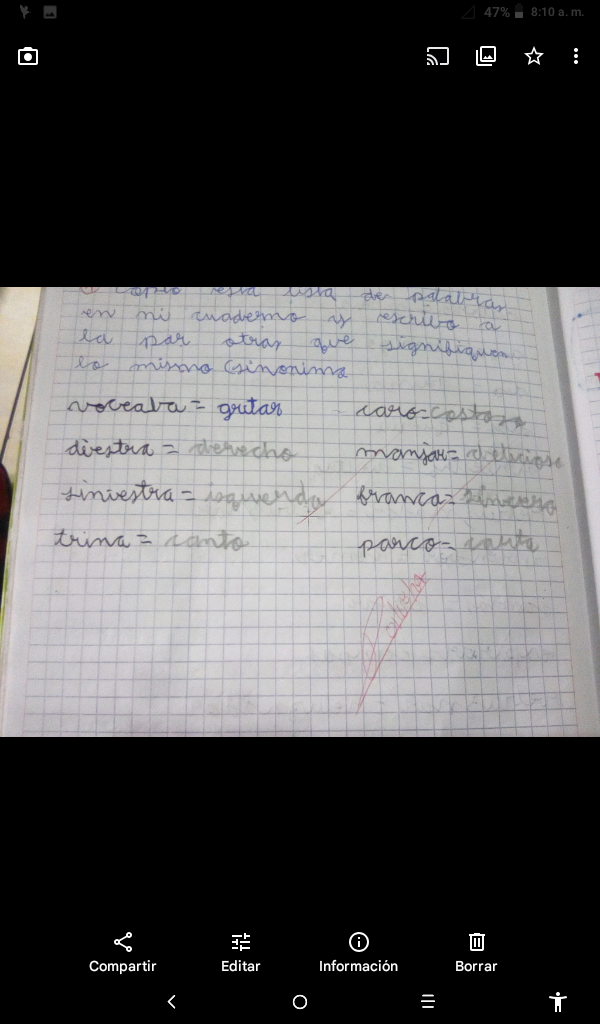 47% 8:10 a. m.
Copio esta lista de palabras
en mi cuaderno y escribo a
la par otras que signifiquen
lo mismo (sinonima
voceaba = gritar caro=costoso
diestra = derecho manjar= delicioso
siniestra = isquerda franca= sincero
trina = canto parco=
Compartir Editar Información Borrar